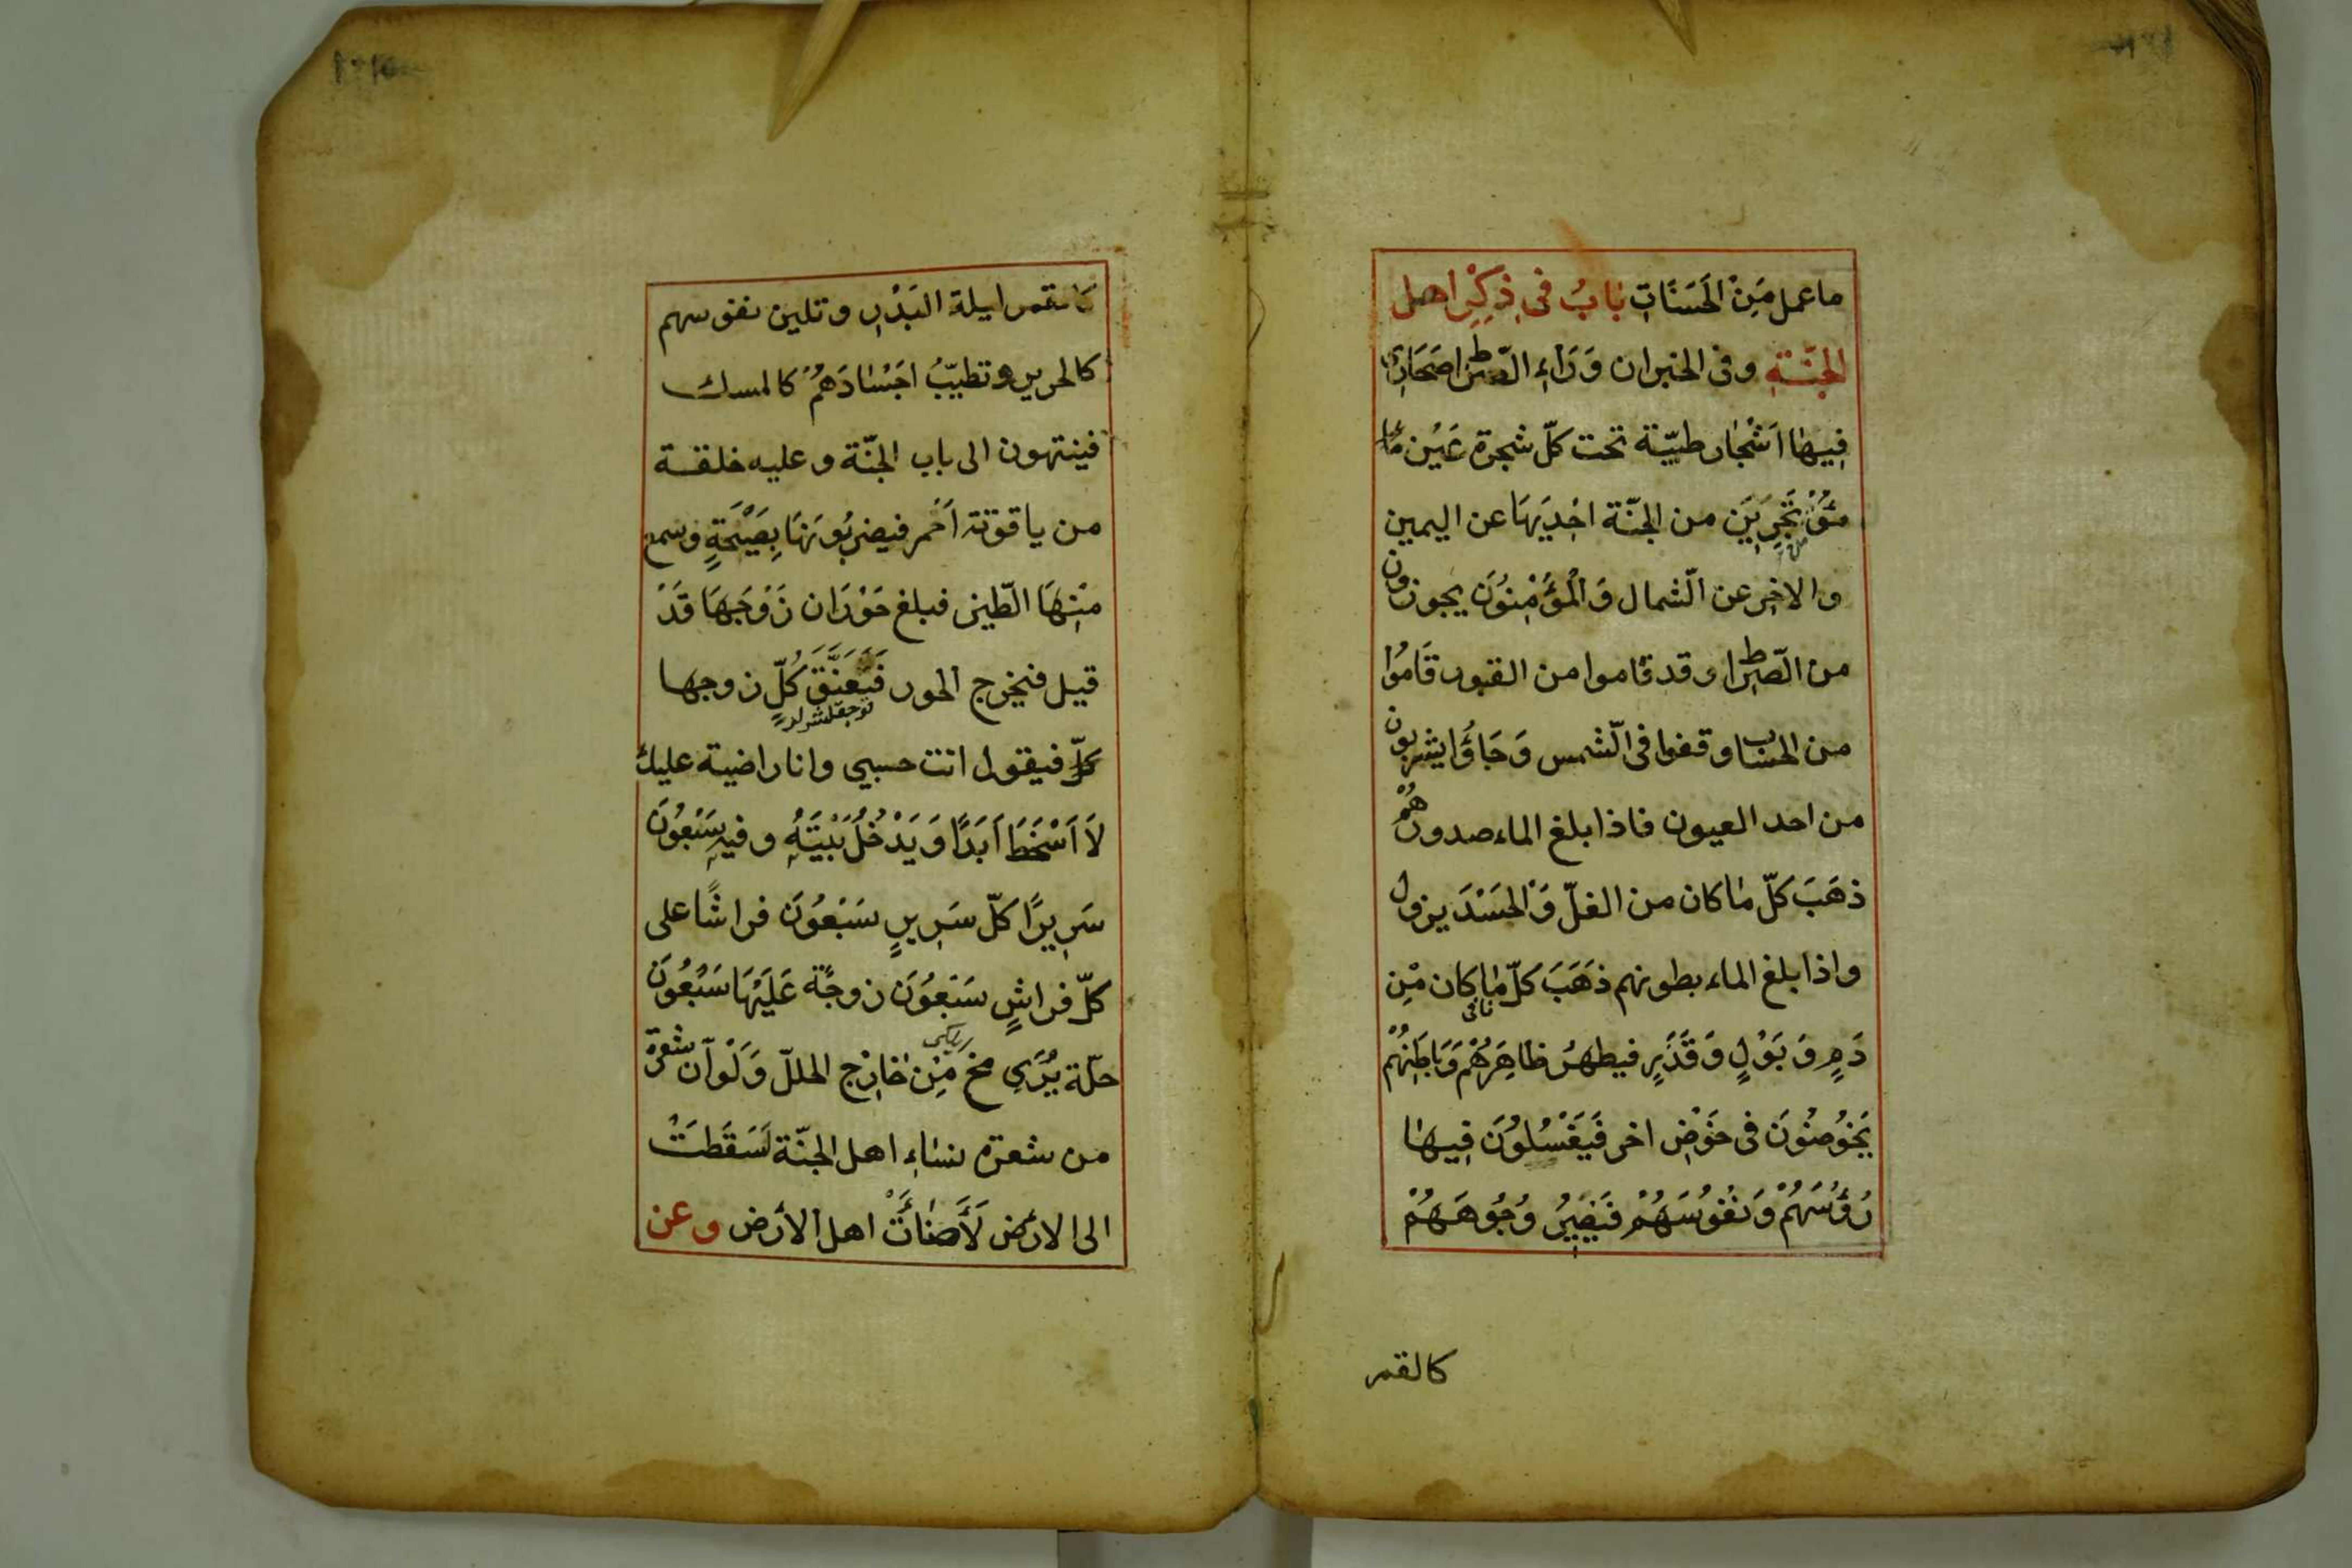 ما عمل مِنْ الحَسَنَاتِ بابُ فى ذِكِرْ اهل
الجنّةِ وفى الخبر ان وَرَاءِ الصّرط اصَحَارَى
فِيهَا اَشْجَار طيّبة تحت كلّ شجرة عَيْن ماء
تَجْرِيَن من الجنّة احْدِيَهَا عن اليمين
والاخِر عن الشّمال وَالْمُؤْمِنُونَ يجوزون
من الصّرط وقد قاموا من القبور قَامُوا
من الحساب وقفوا فى الشّمس وَجَاؤُا يشربون
من احد العيون فاذا بلغ الماء صدورهُمْ
ذهَبَ كلّ ما كان من الغلّ وَالحسَدَ يزول
واذا بلغ الماء بطونهم ذهَبَ كلّ ما كان مِْن
دَمٍ وَ بَوْلٍ وَ قَذَرٍ فيطهرُ ظَاهِرَهُمْ وَبَاطِنهُمْ
يَخُوضُونَ فى حَوْضِ اخر فَيَغْسُلوُنَ فِيهَا
رُؤُسَهُمْ وَنفُوسَهُمْ فَيَصِيُر وُجُوهَهُمْ
كالقمر
كالقمر ليلة البَدْرِ و تلين نفوسهم
كالحرير و تطيبُّ اجَسْادَهُمْ كالمسك
فينتهون الى باب الجنّة و عليه خلقة
من ياقوتة اَحْمر فيضربُونَهَا بِصَيْحَةٍ وسمع
مِنْهَا الطّين فبلغ حَوْرَان زَوْجَهَا قَدْ
قيل فيخرج الحور فَيَعَنَّقَ كُلّ زوجها
كلّ فيقول انت حسبي وانا راضية عليك
لَا اَسْخَطُ اَبَدًا وَيَدْخُلُ بَيْتَهُ وفيهِ سَبْعُونَ
سَرِيرًا كلّ سَرِيرٍ سَبْعُونَ فراشًا على
كلّ فراشٍ سَبْعُونَ زوجًة عَلَيْهَا سَبْعُونَ
حلّة يُرَى مخ مِنْ خَارِْج الحللّ وَلَوْ اَن شعرة
من شعرة نساءِ اهل الجنّة لَسَقَطَتْ
الى الارْض لَأَضَاأَتْ اهل الأرْض وعن